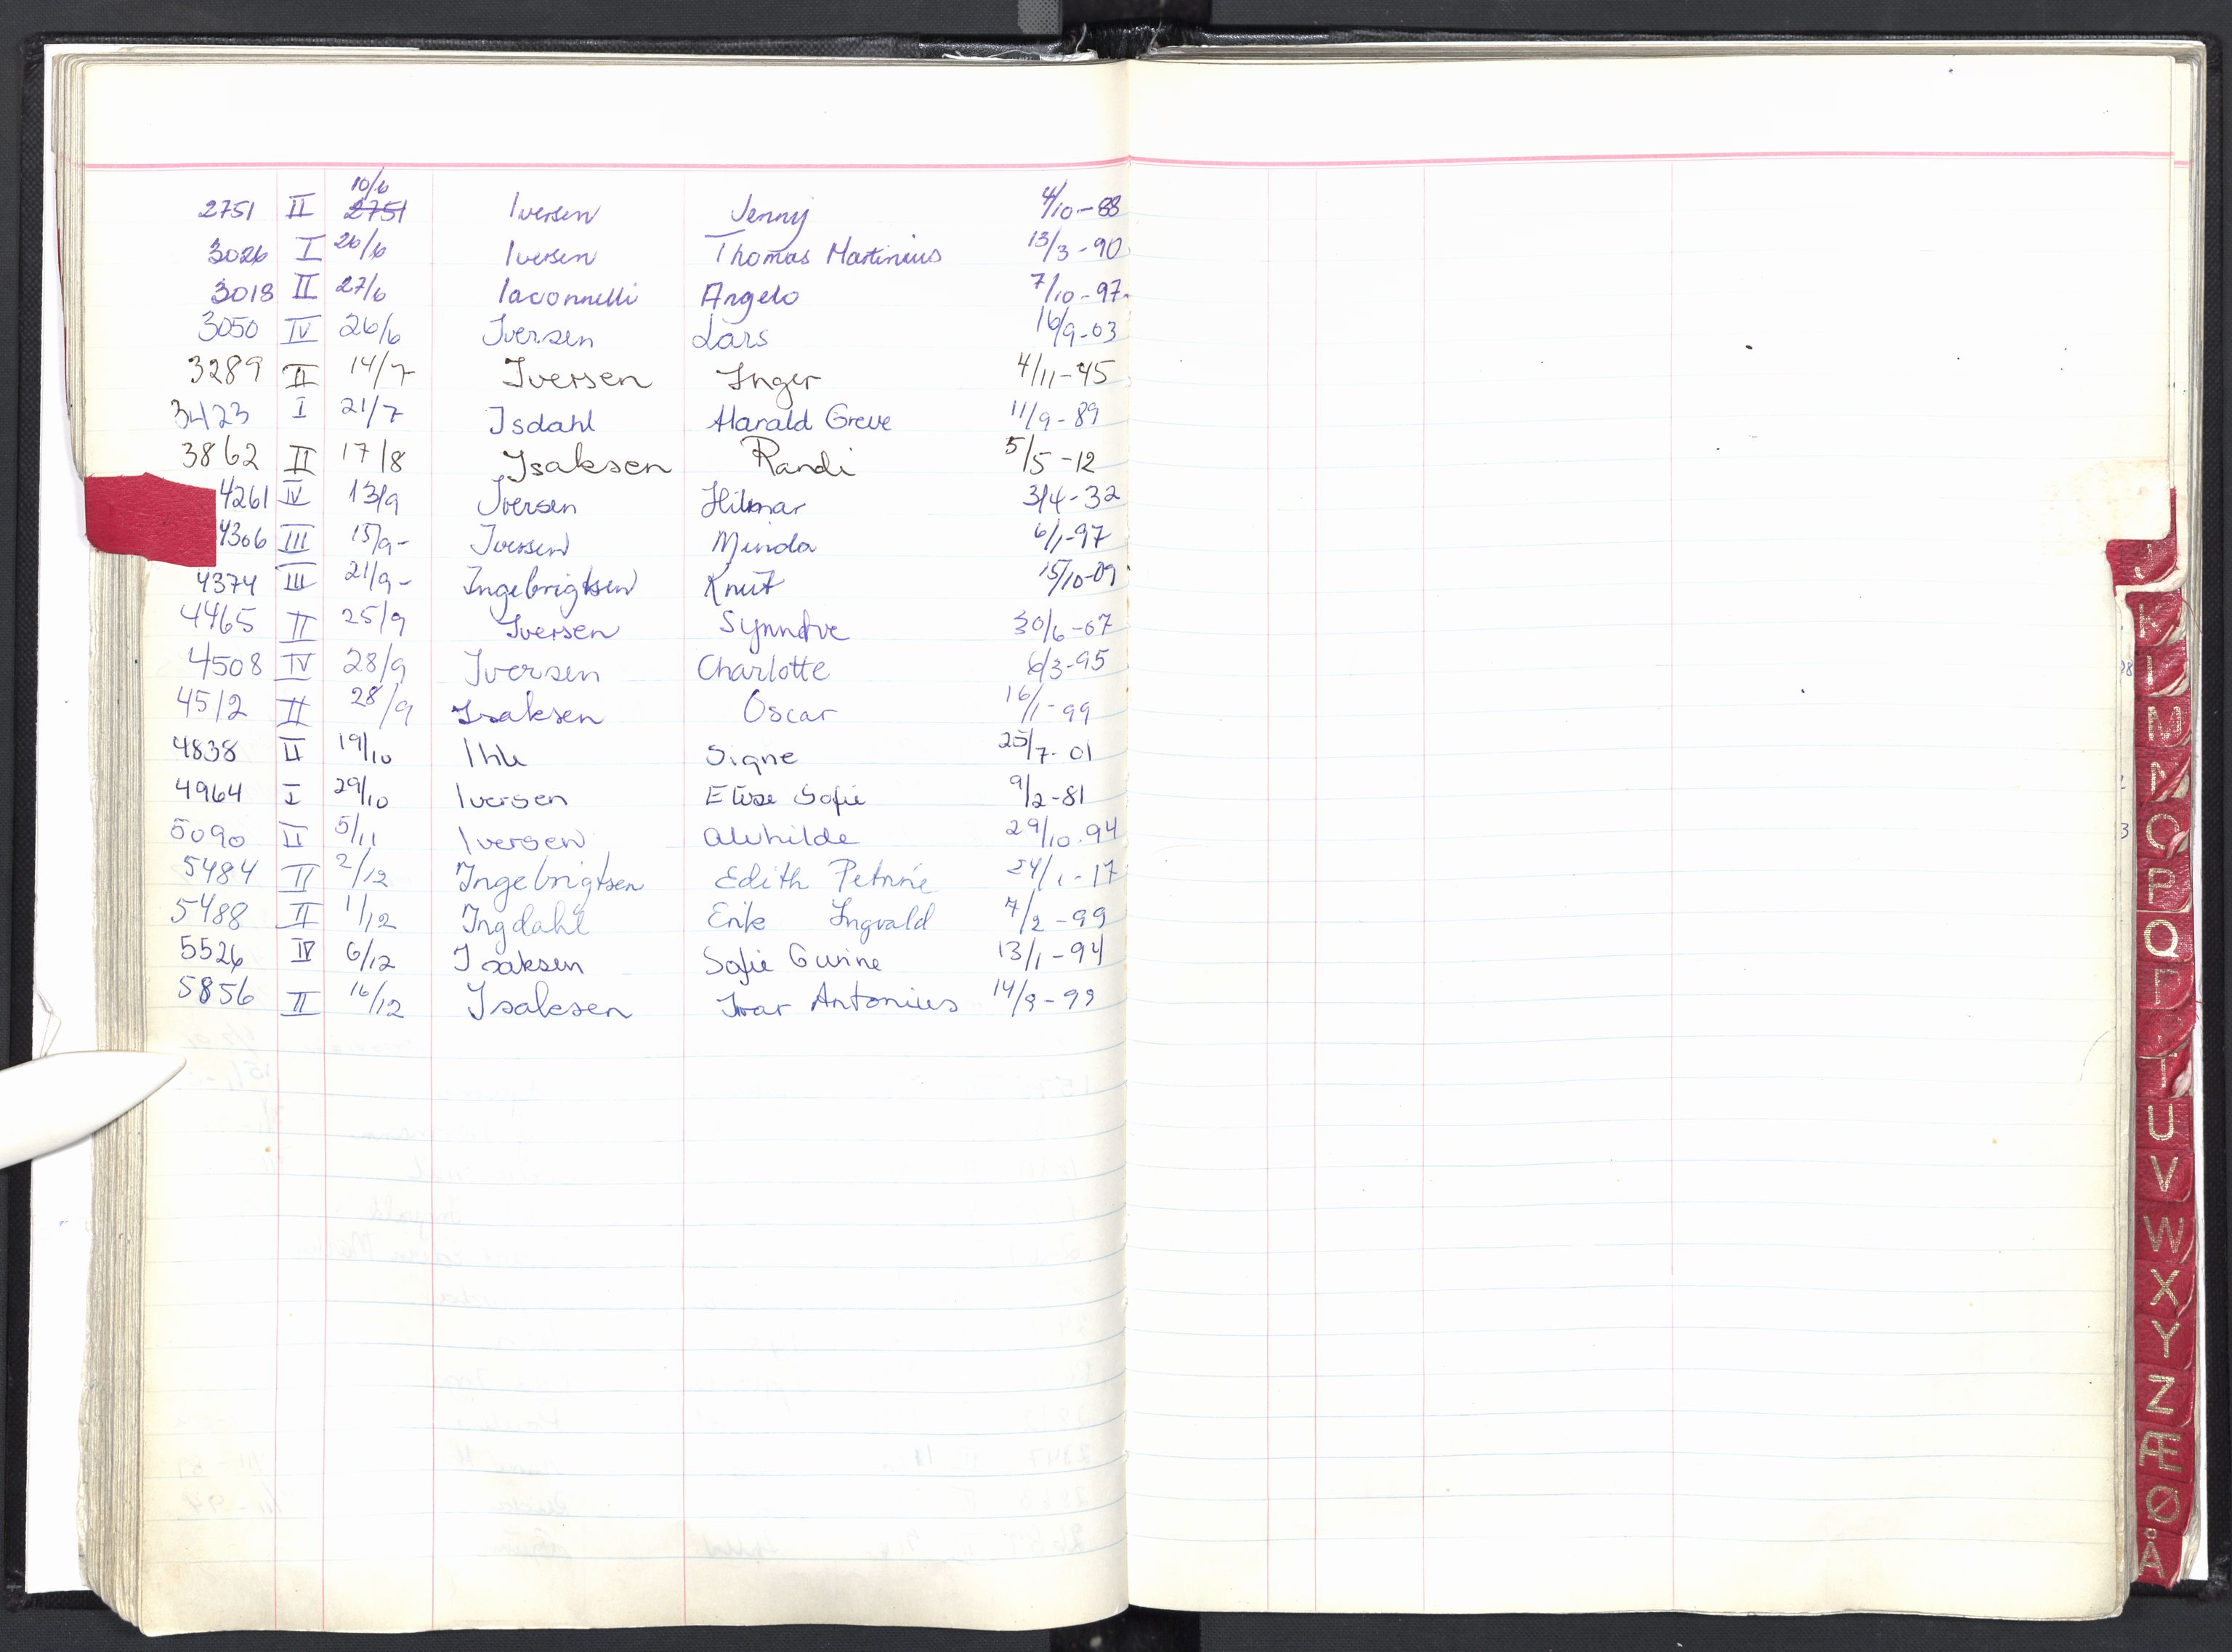 10/6
2751 II 2751 Iversen Jenny 4/10-88
3026 I 26/6 Iversen Thomas Martinius 13/3-90
3018 II 27/6 Iaconnelli Angelo 7/10-97
3050 IV 26/6 Iversen Lars 16/9-03
3289 II 14/7 Iversen Inger 4/11-45
3423 I 21/7 Isdahl Harald Greve 11/9-89
3862 II 17/8 Isaksen Randi 5/5-12
4261 IV 13/9 Iversen Hilmar 3/4-32
4306 III 15/9- Iversen Minda 6/1-97
4374 III 21/9- Ingebrigtsen Knut 15/10-09
4465 II 25/9 Iversen Synnøve 30/6-07
4508 IV 28/9 Iversen Charlotte 6/3-95
4512 II 28/9 Isaksen Oscar 16/1-99
4838 II 19/10 Ihle Signe 25/7-01
4964 I 29/10 Iversen Elise Sofie 9/2-81
5090 II 5/11 Iversen Alvhilde 29/10.94
5484 II 2/12 Ingebrigtsen Edith Petrine 24/1-17
5488 II 1/12 Ingdahl Erik Ingvald 7/2-99
5526 IV 6/12 Isaksen Sofie Gurine 13/1-94
5856 II 16/12 Isaksen Ivar Antonius 14/9-99
J
K
L
M
N
O
P
Q
R
T
U
V
W
X
Y
Z
Æ
Ø
Å